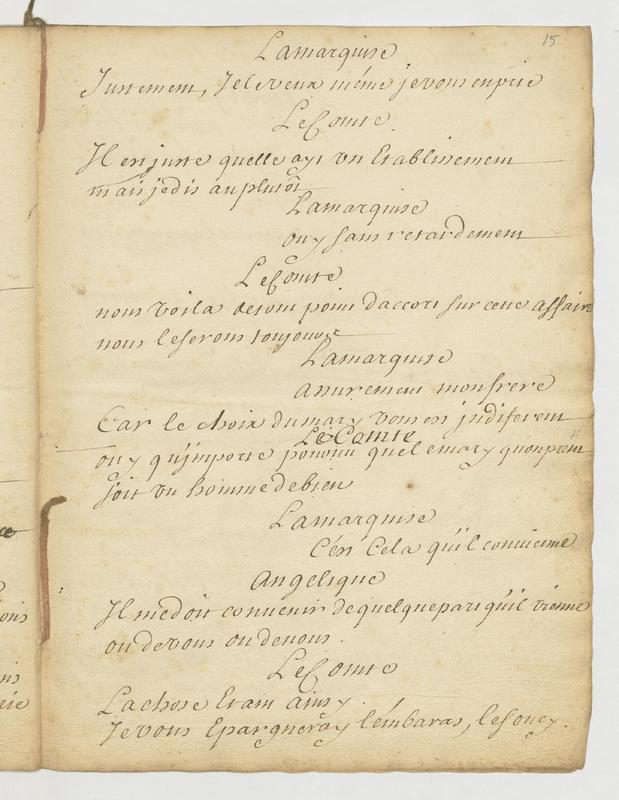 15
Lamarquise
Justement, Je le veux méme je vous en prie
Le Comte
Il en juste quelle ayt un Etablissement
mais je dis au plutôt
Lamarquise
ouy sans retardement
Le Comte
nous voila de tout point daccort sur cette affaire
nous le serons toujours
Lamarquise
assurement mon frere
Car le choix du mary vous est jndiferent
Le Comte
ouy qu'jmporte pourvu quel e mary quon prent
soit un homme de bien
Lamarquise
C'én Cela quil convienne
Angelique
Il me doit convenir de quelque part quil vienne
ou de vous ou de nous.
Le Comte
La chose Etant ainsy
Je vous Epargneray l'émbaras, le soucy.